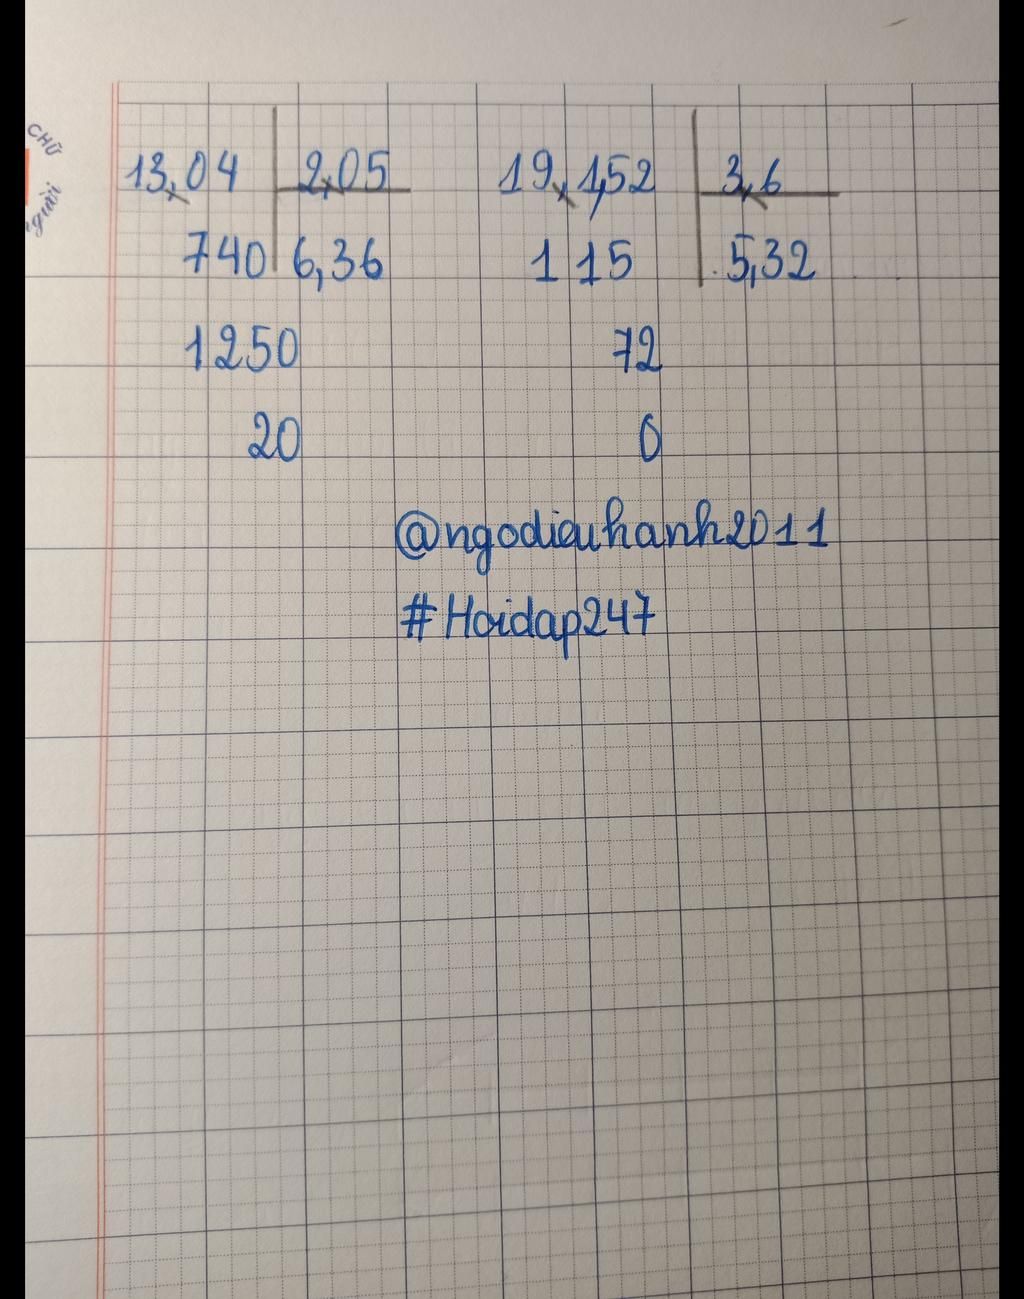 CHỮ
người.
13,04 2,05 19,1,52 3,6
740 6,36 1 15 5,32
1250 72
20 0
@ngodieuhanh2011
#Hoidap247